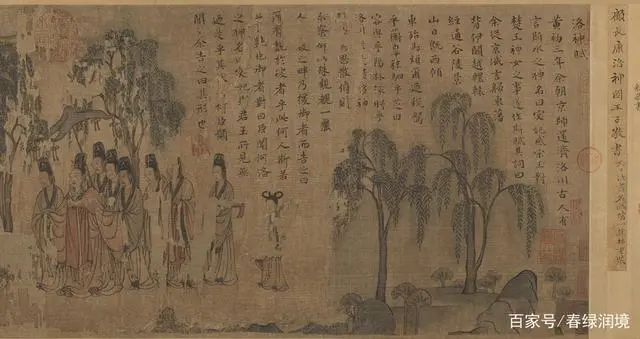 顧長康洛神圖王子敬書
洛神賦
黃初三年余朝京師還濟洛川古人有
言斯水之神名曰宓妃感宋玉對
楚王神女之事遂作斯賦其詞曰
余從京域言歸東藩
背伊闕越轘轅
經通谷陵景
山日既西傾
車殆馬煩爾迺稅駕
乎蘅皋秣駟乎芝田
容與乎陽林流眄乎
洛川於是精移神
駭忽焉思散俯則
未察仰以殊觀覩一麗
人巖之畔乃援御者而告之曰
爾有覿於彼者乎此何人斯若
此之艷也御者對曰臣聞河洛
之神名曰宓妃則君王所見無
迺是乎其狀若何臣願
聞之余告之曰其形也
百家号/春绿润境